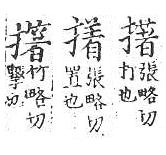 撯張略切
打也
張略切
置也
擆竹略切
擊也